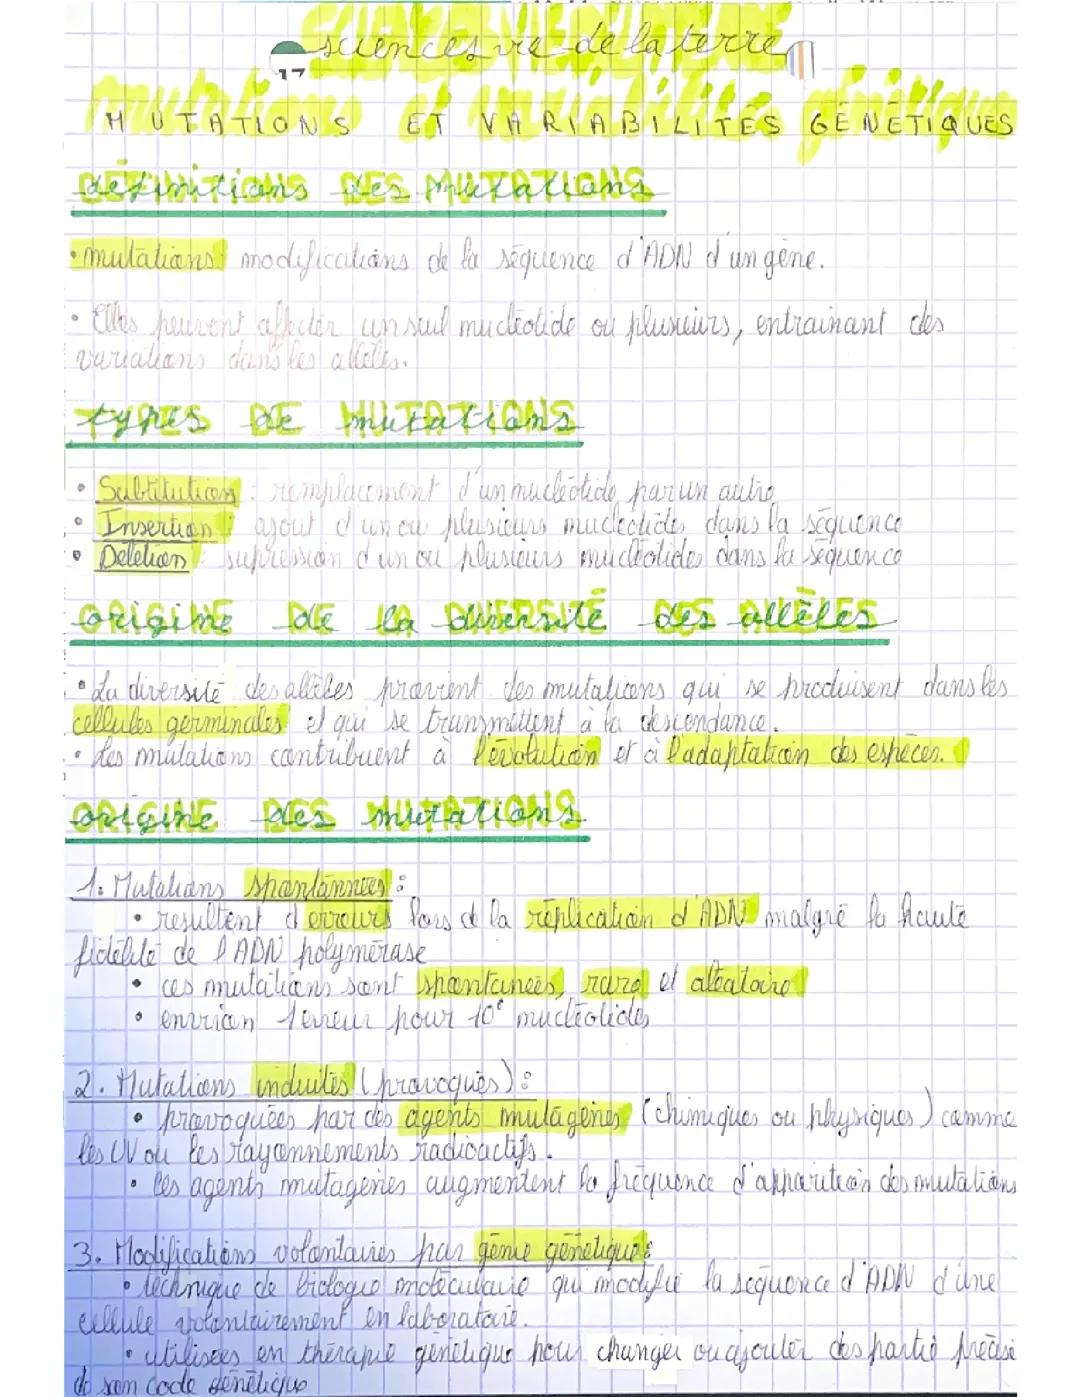 sciences vie de la terre
17
MUTATIONS ET VARIABILITÉS GÉNÉTIQUES
définitions des mutations
• mutations: modifications de la séquence d'ADN d'un gène.
• Elles peuvent affecter un seul nucléotide ou plusieurs, entrainant des
variations dans les allèles.
types de mutations
• Subtitution : remplacement d'un nucléotide par un autre
• Insertion : ajout d'un ou plusieurs nucléotides dans la séquence
• Délétion : supression d'un ou plusieurs nucléotides dans la séquence
origine de la diversité des allèles
• La diversité des allèles provient des mutations qui se produisent dans les
cellules germinales et qui se transmettent à la descendance.
• Les mutations contribuent à l'évolution et à l'adaptation des espèces.
origine des mutations
1. Mutations spontannées :
• resultent d'erreurs lors de la réplication d'ADN malgré la haute
fidélité de l'ADN polymérase
• ces mutations sont spontanées, rare et aléatoire
• envrion 1 erreur pour 10⁶ nucléotides
2. Mutations induites (provoqués) :
• provoquées par des agents mutagènes (chimiques ou physiques) comme
les UV ou les rayonnements radioactifs.
• les agents mutagènes augmentent la fréquence d'apparition des mutations
3. Modifications volontaires par génie génétique :
• technique de biologie moléculaire qui modifie la séquence d'ADN d'une
cellule volontairement en laboratoire.
• utilisées en thérapie génétique pour changer ou ajouter des partie précise
de som code génétique